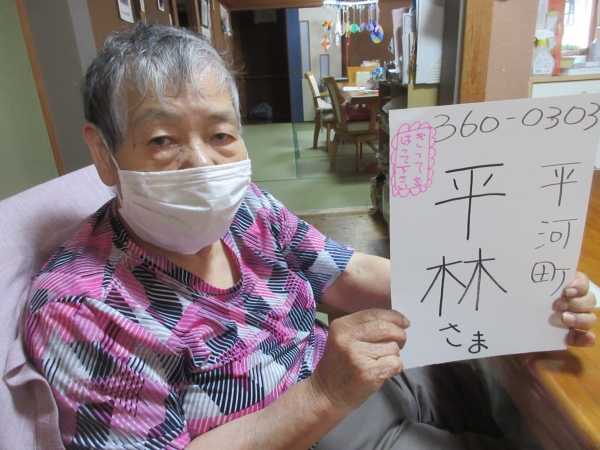 360-0303
平河町
平林
さま
きってを
はって下さい